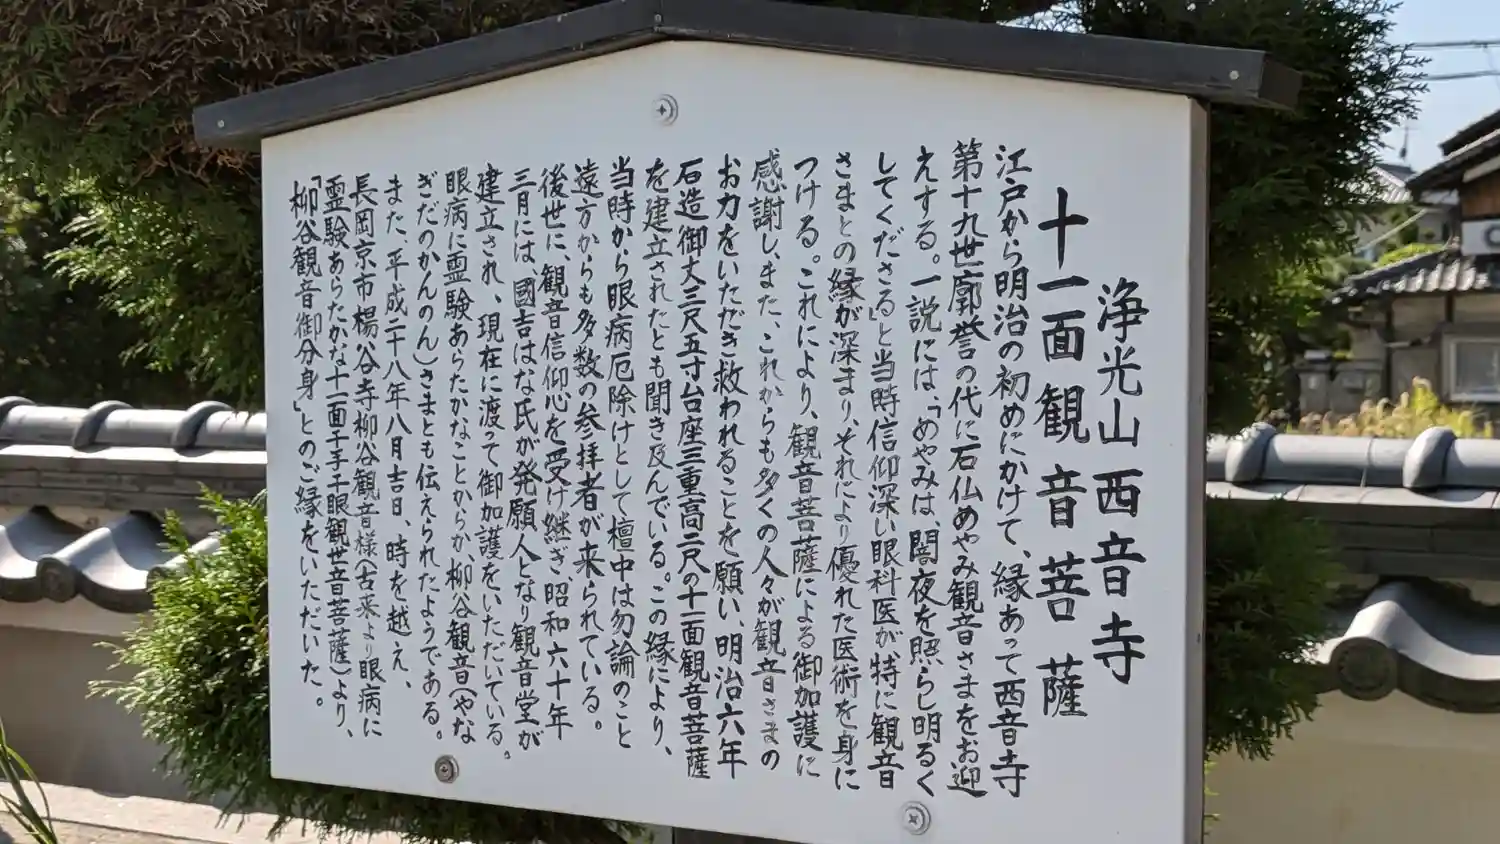 浄光山西音寺
十一面観音菩薩
江戸から明治の初めにかけて、縁あって西音寺
第十九世廓誉の代に石仏めやみ観音さまをお迎
えする。一説には、「めやみは、闇夜を照らし明るく
してくださる」と当時信仰深い眼科医が特に観音
さまとの縁が深まり、それにより優れた医術を身に
つける。これにより、観音菩薩による御加護に
感謝し、また、これからも多くの人々が観音さまの
お力をいただき救われることを願い、明治六年
石造御丈三尺五寸台座三重高二尺の十一面観音菩薩
を建立されたとも聞き及んでいる。この縁により、
当時から眼病厄除けとして檀中は勿論のこと
遠方からも多数の参拝者が来られている。
後世に、観音信仰心を受け継ぎ昭和六十年
三月には、國吉はな氏が発願人となり観音堂が
建立され、現在に渡って御加護をいただいている。
眼病に霊験あらたかなことからか、柳谷観音(やな
ぎだのかんのん)さまとも伝えられたようである。
また、平成二十八年八月吉日、時を越え、
長岡京市楊谷寺柳谷観音様(古来より眼病に
霊験あらたかな十一面千手千眼観世音菩薩)より、
「柳谷観音御分身」とのご縁をいただいた。